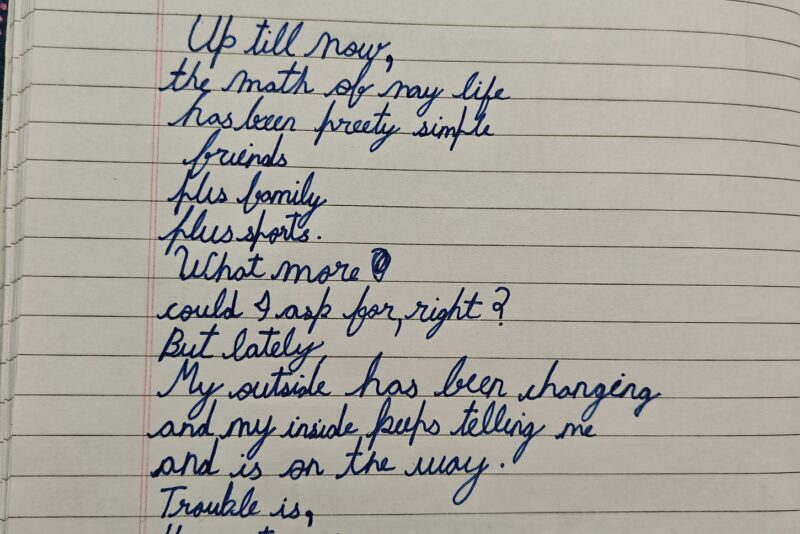 Up till now,
the math of may life
has been preety simple
friends
plus family
plus sports.
What more
could I ask for, right?
But lately,
My outside has been changing
and my inside keeps telling me
and is on the way.
Trouble is,